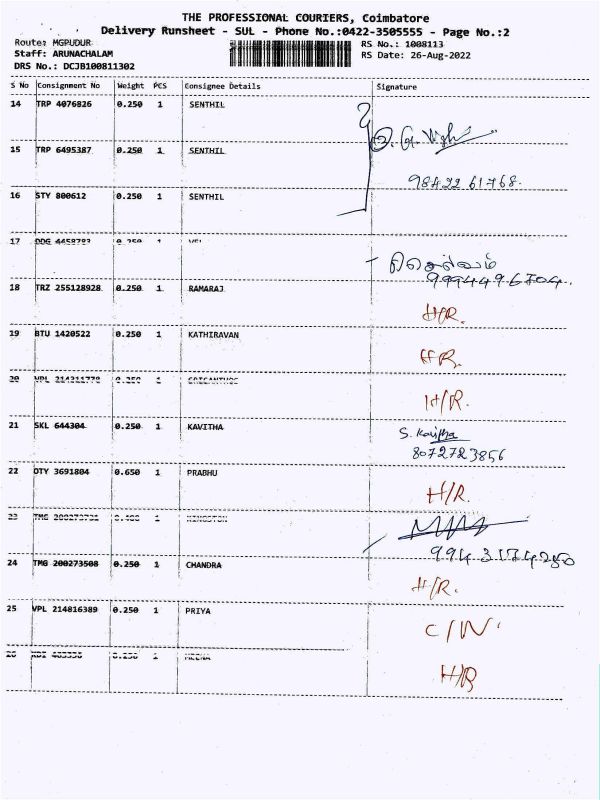 THE PROFESSIONAL COURIERS, Coimbatore
Delivery Runsheet - SUL - Phone No.:0422-3505555 - Page No.:2
Route: MGPUDUR RS No.: 1008113
Staff: ARUNACHALAM RS Date: 26-Aug-2022
DRS No.: DCJB100811302
S No Consignment No Weight PCS Consignee Details Signature
14 TRP 4076826 0.250 1 SENTHIL
15 TRP 6495387 0.250 1 SENTHIL
98422 61768.
16 STY 800612 0.250 1 SENTHIL
17 DDG 4458783 0.250 1 VEL செல்வம்
9994496704
18 TRZ 255128928 0.250 1 RAMARAJ H/R.
19 BTU 1420522 0.250 1 KATHIRAVAN H/R.
20 VPL 1 H/R.
21 SKL 644304 0.250 1 KAVITHA S. Kavitha
8072723856
22 DTY 3691804 0.650 1 PRABHU H/R.
23 TMG 1 KINGSTON
9943174250
24 TMG 200273508 0.250 1 CHANDRA H/R.
25 VPL 214816389 0.250 1 PRIYA C/N.
26 0.250 1 MEENA H/R